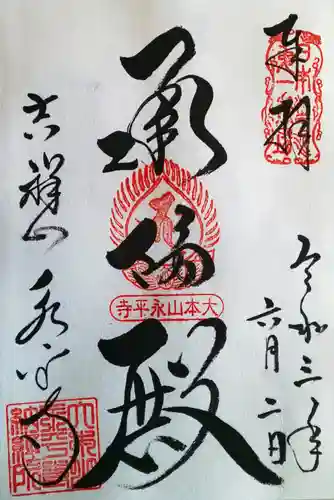 奉拝
令和三年
六月二日
承陽殿
大本山永平寺
吉祥山
永平寺